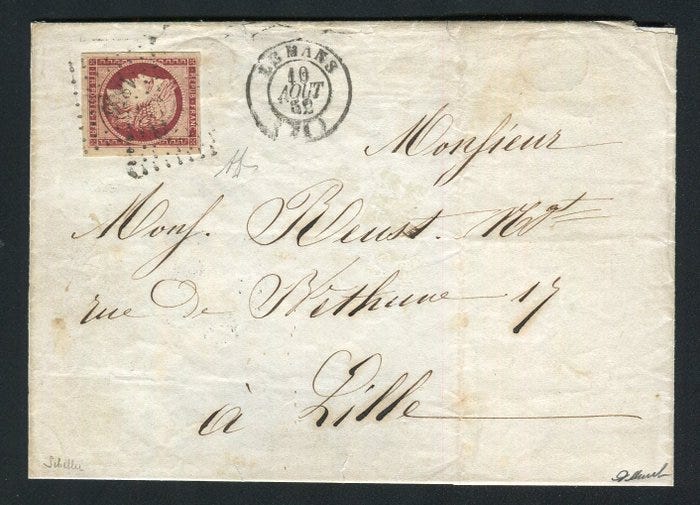 LE MANS
10
AOUT
52
Monsieur
Mons. Beust. Nég.t
rue de Béthune 17
à Lille